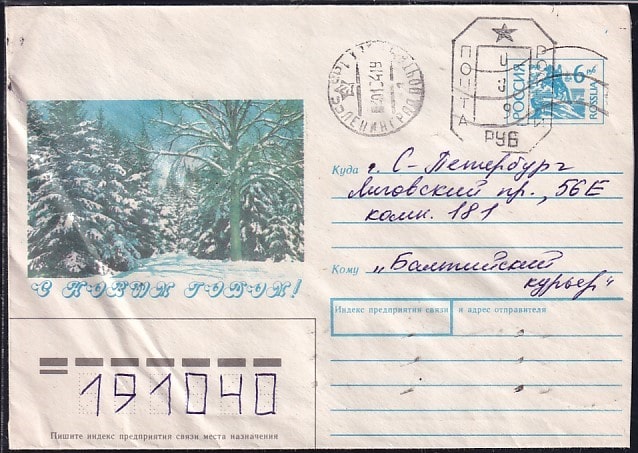 ПОЧТА
РУБ
РОССИЯ
6
ROSSIJA
Куда г. С-Петербург
Лиговский пр., 56Е
комн. 181
Кому „Балтийский
курьер“
С НОВЫМ ГОДОМ!
Индекс предприятия связи и адрес отправителя
191040
Пишите индекс предприятия связи места назначения